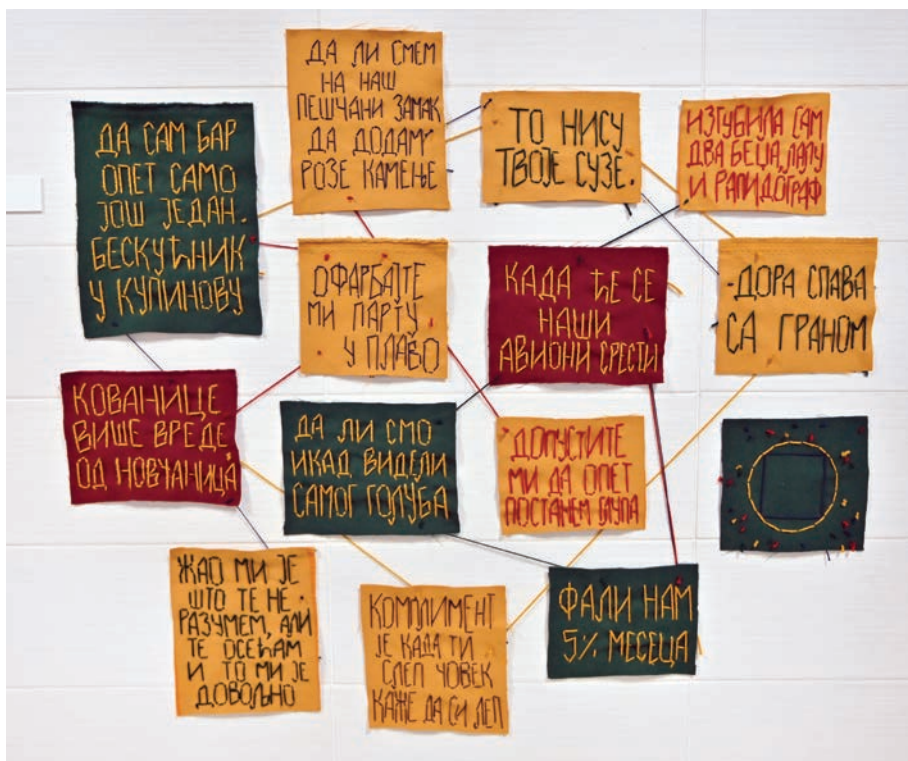 ДА ЛИ СМЕМ
НА НАШ
ПЕШЧАНИ ЗАМАК
ДА ДОДАМ
РОЗЕ КАМЕЊЕ
ДА САМ БАР
ОПЕТ САМО
ЈОШ ЈЕДАН
БЕСКУЋНИК
У КУПИНОВУ
ТО НИСУ
ТВОЈЕ СУЗЕ.
ИЗГУБИЛА САМ
ДВА БЕЏА, ЛАЛУ
И РАПИДОГРАФ
ОФАРБАЈТЕ
МИ ПАРТУ
У ПЛАВО
КАДА ЋЕ СЕ
НАШИ
АВИОНИ СРЕСТИ
-ДОРА СПАВА
СА ГРАНОМ
КОВАНИЦЕ
ВИШЕ ВРЕДЕ
ОД НОВЧАНИЦА
ДА ЛИ СМО
ИКАД ВИДЕЛИ
САМОГ ГОЛУБА
ДОПУСТИТЕ
МИ ДА ОПЕТ
ПОСТАНЕМ ГЛУПА
ЖАО МИ ЈЕ
ШТО ТЕ НЕ
РАЗУМЕМ, АЛИ
ТЕ ОСЕЋАМ
И ТО МИ ЈЕ
ДОВОЉНО
КОМПЛИМЕНТ
ЈЕ КАДА ТИ
СЛЕП ЧОВЕК
КАЖЕ ДА СИ ЛЕП
ФАЛИ НАМ
5% МЕСЕЦА